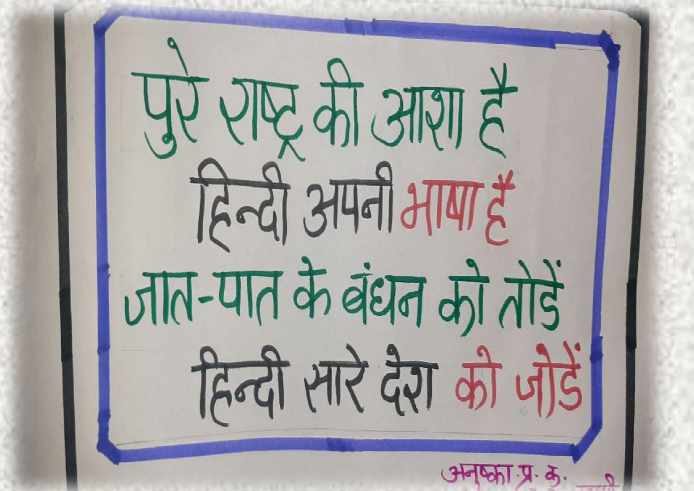 पुरे राष्ट्र की आशा है
हिन्दी अपनी भाषा है
जात-पात के बंधन को तोडें
हिन्दी सारे देश को जोडें
अनुष्का.प्र.क.